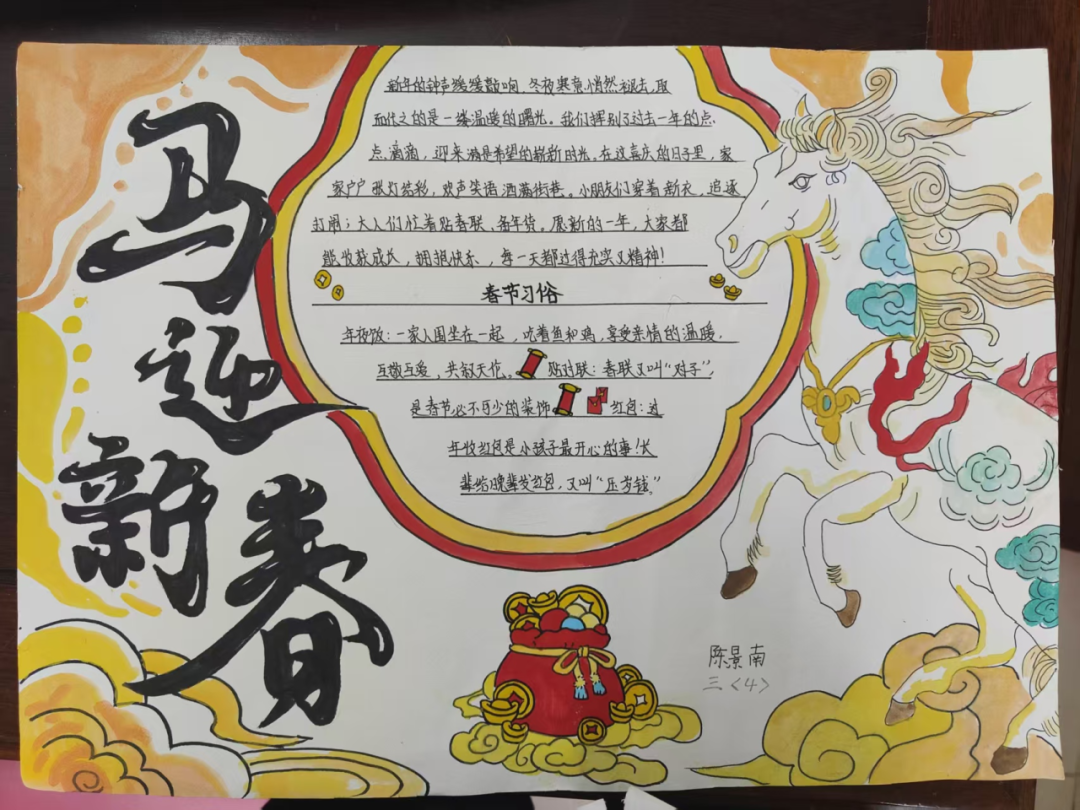 马迎新春
新年的钟声缓缓敲响，冬夜寒意悄然褪去，取
而代之的是一缕温暖的曙光。我们挥别了过去一年的点
点滴滴，迎来满是希望的崭新时光。在这喜庆的日子里，家
家户户张灯结彩，欢声笑语洒满街巷。小朋友们穿着新衣，追逐
打闹；大人们忙着贴春联、备年货。愿新的一年，大家都
能收获成长，拥抱快乐，每一天都过得充实又精神！
春节习俗
年夜饭：一家人围坐在一起，吃着鱼和鸡，享受亲情的温暖，
互敬互爱，共叙天伦。贴对联：春联又叫“对子”，
是春节必不可少的装饰 红包：过
年收红包是小孩子最开心的事！长
辈给晚辈发红包，又叫“压岁钱”。
陈景南
三〈4〉